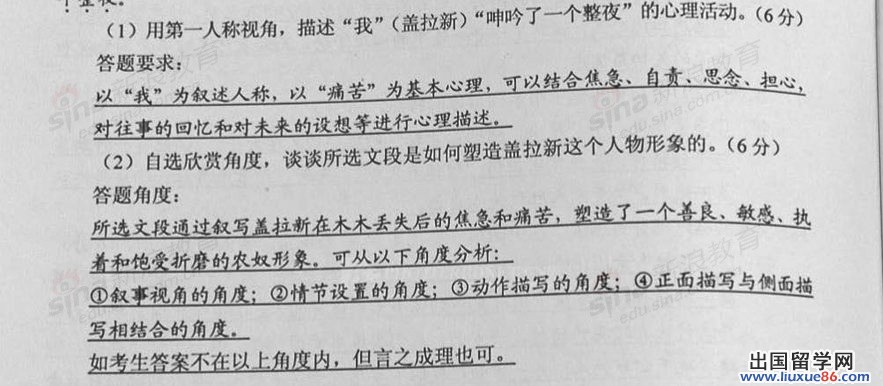 个整夜。
（1）用第一人称视角，描述“我”（盖拉新）“呻吟了一个整夜”的心理活动。（6分）
答题要求：
以“我”为叙述人称，以“痛苦”为基本心理，可以结合焦急、自责、思念、担心，
对往事的回忆和对未来的设想等进行心理描述。
（2）自选欣赏角度，谈谈所选文段是如何塑造盖拉新这个人物形象的。（6分）
答题角度：
所选文段通过叙写盖拉新在木木丢失后的焦急和痛苦，塑造了一个善良、敏感、执
着和饱受折磨的农奴形象。可从以下角度分析：
①叙事视角的角度；②情节设置的角度；③动作描写的角度；④正面描写与侧面描
写相结合的角度。
如考生答案不在以上角度内，但言之成理也可。
出国留学网
www.liuxue86.com